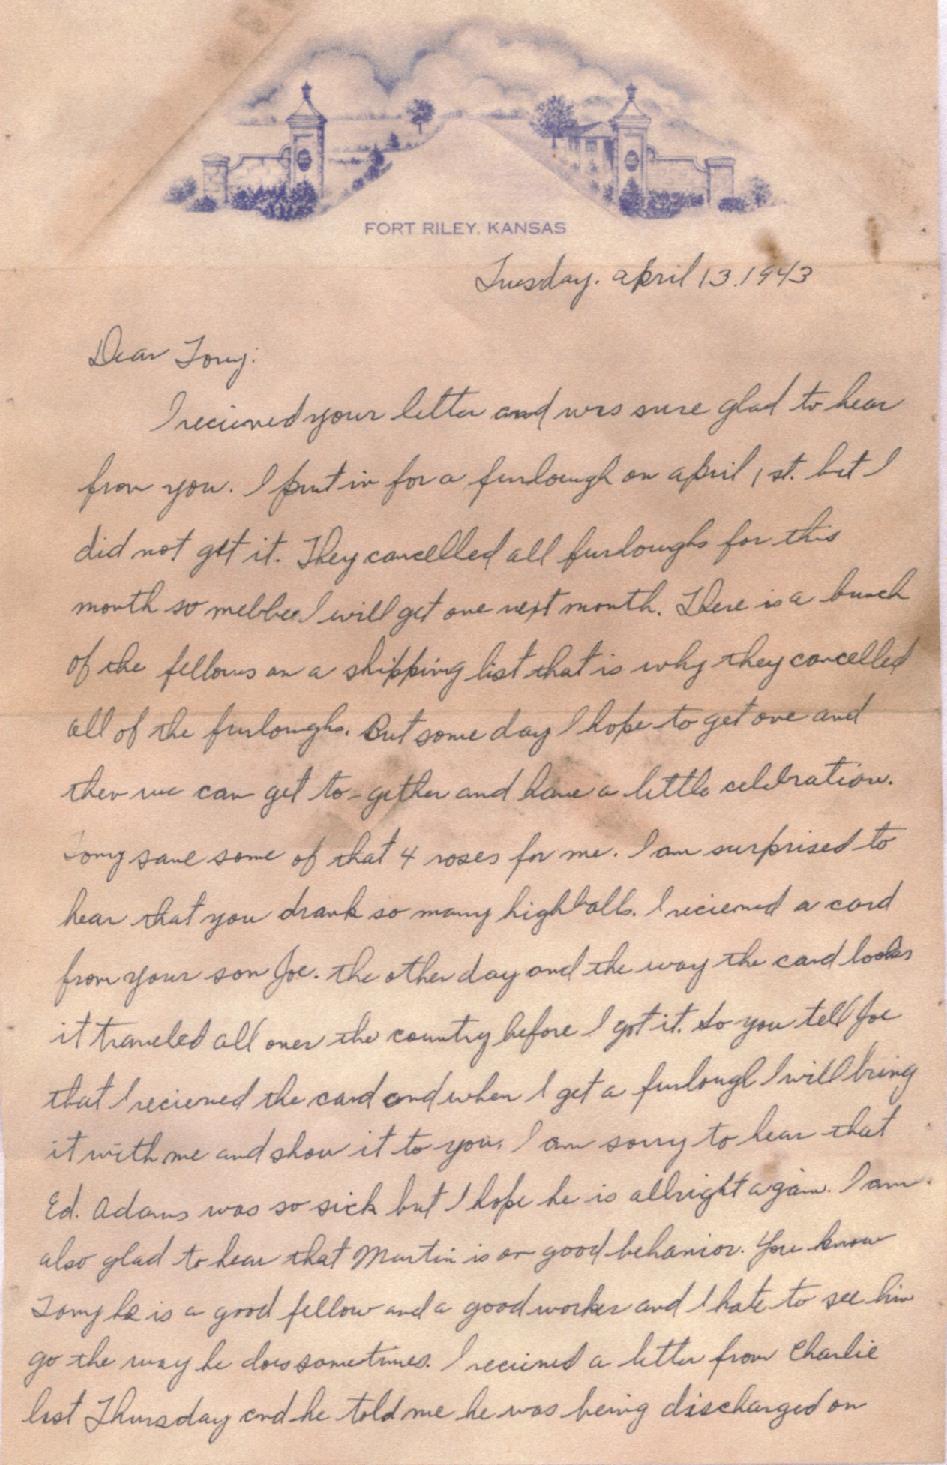 FORT RILEY, KANSAS
Tuesday. april 13. 1943
Dear Tony:
I recieved your letter and was sure glad to hear
from you. I put in for a furlough on april 1st. but I
did not get it. They cancelled all furloughs for this
month so mebbee I will get one next month. There is a bunch
of the fellows on a shipping list that is why they cancelled
all of the furloughs. But some day I hope to get one and
then we can get to-gether and have a little celebration.
Tony save some of that 4 roses for me. I am surprised to
hear that you drank so many highballs. I recieved a card
from your son Joe. the other day and the way the card looks
it traveled all over the country before I got it. So you tell Joe
that I recieved the card and when I get a furlough I will bring
it with me and show it to you. I am sorry to hear that
Ed. Adams was so sick but I hope he is allright again. I am
also glad to hear that Martin is on good behavior. You know
Tony he is a good fellow and a good worker and I hate to see him
go the way he does sometimes. I recieved a letter from Charlie
last Thursday and he told me he was being discharged on